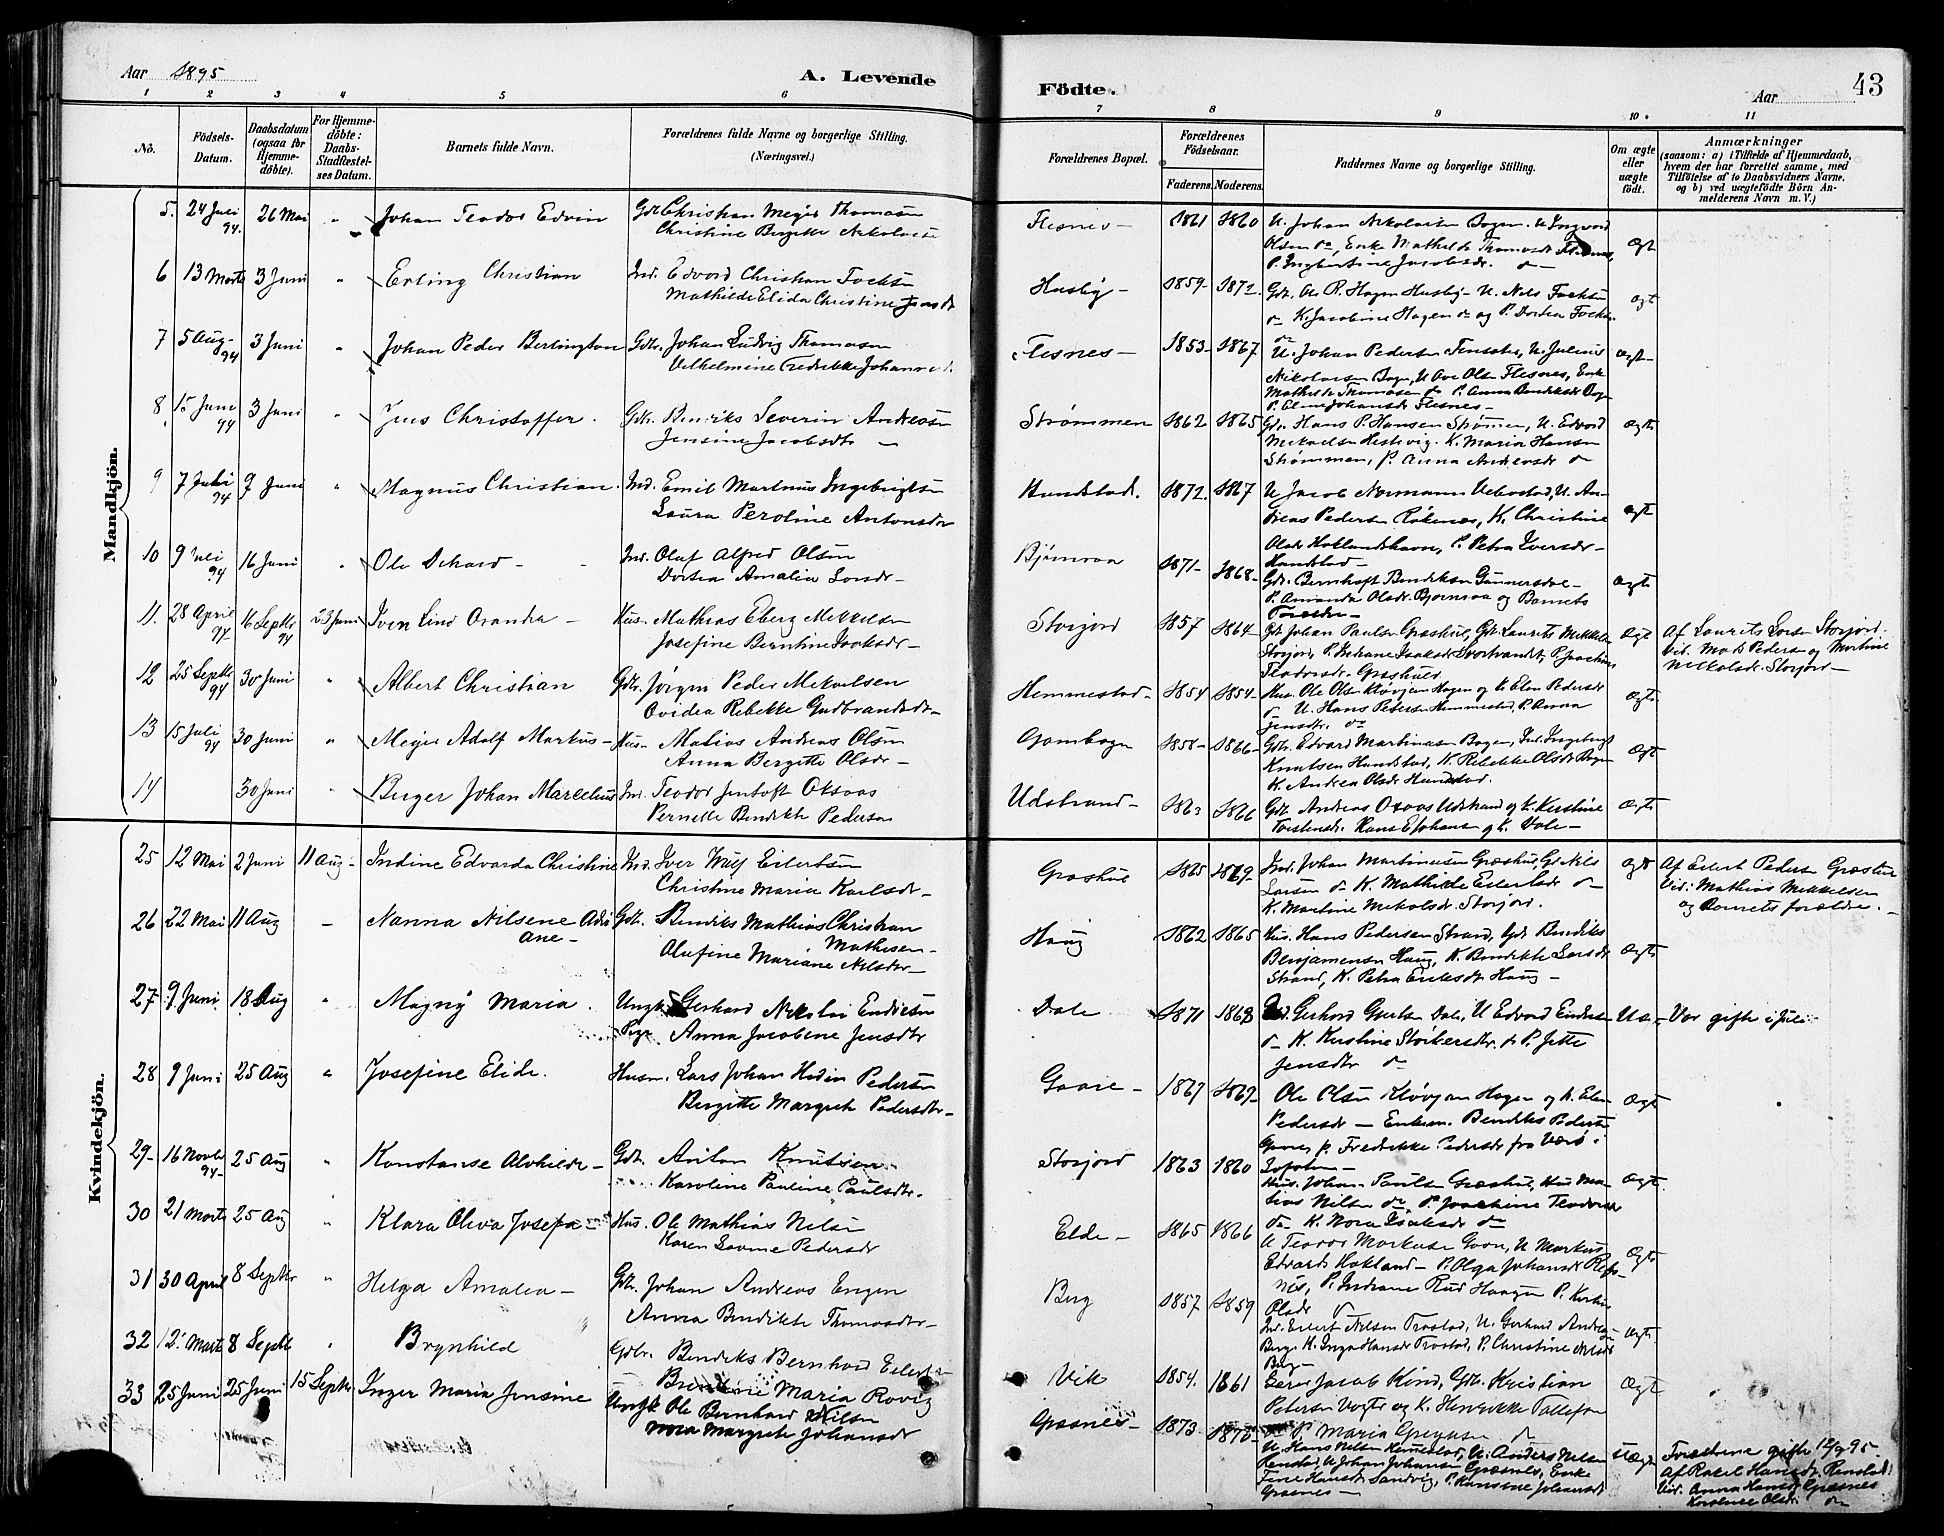 Aar 1895
A. Levende
Födte.
Aar
43
1 2 3 4 5 6 7 8 9 10 11
No.
Födsels-
Datum.
Daabsdatum
(ogsaa for
Hjemme-
döbte).
For Hjemme-
döbte:
Daabs-
Stadfæstel-
ses Datum.
Barnets fulde Navn.
Forældrenes fulde Navne og borgerlige Stilling.
(Næringsvei.)
Forældrenes Bopæl.
Forældrenes
Födselsaar.
Faderens. Moderens.
Faddernes Navne og borgerlige Stilling.
Om ægte
eller
uægte
födt.
Anmærkninger
(saasom: a) i Tilfælde af Hjemmedaab,
hvem der har forrettet samme, med
Tilföielse af to Daabsvidners Navne,
og b) ved uægtefödte Börn An-
melderens Navn m. V.)
Mandkjön.
5. 24 Juli 94. 26 Mai " Johan Teodor Edvin
Gdb Christian Meyer Thomasen
Christine Bergitte Nikolaisd
Flesnes 1861 1860
U. Johan Nikolaisen Bogen, U. Ingvard
Olsen do, Enke Mathilde Thomasdr Flesnes,
P. Ingbertine Jacobsdr. do
Ægt
6 13 Marts 3 Juni " Erling Christian
Ind. Edvard Christian Focksen
Mathilde Elida Christine Jensdr
Husby 1859 1872
Gdb. Ole R. Hagen Husby U. Nels Focksen
do K. Jacobine Hagen do og P. Dortea Focksen
do
Ægt
7 5 Aug. 94 3 Juni " Johan Peder Berlington
Gdbr. Johan Ludvig Thomasen
Vilhelmine Fredrikke Johansd.
Flesnes 1853 1867
U. Johan Pedersen Finsæter, U. Julius
Nikolaisen Bogen, U Ove Olsen Flesnes, Enke
Mathilde Thomasen do P. Anna Bendiksdr Bogen
P. Eline Johansdr Flesnes
Ægt
8 15 Juni 94 3 Juni " Jens Christoffer.
Gdbr. Benriks Severin Andreasen
Jensine Jacobsdtr
Strømmen 1862 1865
Gdr. Hans P. Hansen Strømmen, U. Edvard
Mekaelsen Hestevig. K. Maria Hansen
Strømmen, P. Anna Andreasdr do
Ægt
9 7 Juli 94 9 Juni " Magnus Christian.
Ind. Emil Martinus Ingebrigtsen
Laura Peroline Antonsdr
Hundstad. 1872. 1867
U Jacob Normann Vebostad, U. An-
dreas Pedersen Røkenes, K. Christine
Olsdr Hoklandshavn, P. Petra Iversdr
Hundstad
Ægt
10 9 Juli 94 16 Juni " Ole Dehard
Ind. Oluf Alfred Olsen
Dortea Amalia Larsdr
Bjørnraa 1871 1868
Gdr. Bernhoft Bendiksen Gunnersdal
P. Amanda Olsdr. Bjornraa og Barnets
Forældre
Ægt
11. 28 April 94. 16 Septbr 94 23 Juni Iven Lind Oranda
Hus. Mathias Eberg Mekkelsen
Josefine Berntine Isaksdr
Storjord 1857 1864
Gdr Johan Paulsen Græshul, Gdr. Laurits Mekkelsen
Storjord, P. Indiane Isaksdr Svartvandet, P. Joachine
Teodorsdr. Græshul
Ægt
Af Laurits Larsen Storjord.
Vid. Mads Pedersen og Martine
Nekolsdr. Storjord
12 25 Septbr 94 30 Juni " Albert Christian
Gdbr. Jørgen Peder Mekaelsen
Ovidea Rebekke Gudbrandsdr
Hemmestad 1854 1854
Hus. Ole Olsen Kløvjan Hagen og K. Elen Pedersdr
do U. Hans Petersen Hemmestad, P. Anna
Jensdtr. do
Ægt
13 15 Juli 94 30 Juni " Meyer Adolf Markus
Hus. Matias Andreas Olsen
Anna Bergitte Olsdr
Gombogen 1858 1866
Gdbr. Edvard Martinusen Bogen, Ind. Ingebrigt
Knutsen Hundstad, K. Rebekke Olsdr Bogen
K. Andrea Olsdr Hundstad.
Ægt
14 30 Juni " Berger Johan Marcelius
Ind. Teodor Jentoft Oksaas
Pernelle Bendikte Pedersen
Udstrand 1863 1866
Gdb. Andreas Oxaas Udstrand og K. Kerstine
Torstensdr. Hans E Johansen og K. Vole
Ægt
Kvindekjön.
25 12 Mai 2 Juni 11 Aug Indine Edvarda Christine
Ind. Iver Wulf Eilertsen
Christine Maria Karlsdr
Græshul 1865 1869
Ind. Johan Martinusen Græshul, G. Nils
Larsen do K. Mathilde Eilertsdr do
K. Martine Nekolsdr. Storjord.
Ægt
Af Eilert Pedersen Græshul
Vid: Mathias Mekkelsen
og Barnets forældre.
26 22 Mai 11 Aug Nanna Nilsene Adri
ane
Gdb. Bendiks Mathias Christian
Mathisen
Olufine Mariane Nilsdr
Haug 1862 1865
Hus. Hans Pedersen Strand, Gdr Bendiks
Benjamensen Haug, K. Bendikte Larsdr
Strand, K. Petra Eriksdr Haug
Ægt
27 9 Juni 18 Aug " Magny Maria.
Ungk. Gerhard Nikolai Endresen
Pige Anna Jacobine Jensdtr
Dale 1871 1868
Ind. Gerhard Gjertsen Dale, U Edvard Endresen
do K. Kerstine Størkersdtr. do P. Jette
Jensdtr do
Uæ. Var gifte i Juli
28 9 Juni 25 Aug " Josefine Elide.
Husm. Lars Johan Hedin Pedersen
Bergitte Margrete Pedersdtr
Gaare 1867 1869
Ole Olsen Kløvjan Hagen og K. Elen
Pedersdr Enkem. Bendiks Pedersen
Gaare, P. Fredrikke Pedersdr fra Værø i
Lofoten
Ægt
29 16 Novbr 94 25 Aug " Konstanse Alvhilde
Gdb. Anton Knutsen
Karoline Pauline Paulsdtr.
Storjord 1863 1860
Hus. Johan Paulsen Græshul, Hus Ma-
tias Nilsen do, P. Joachine Teodorsdr
do K. Nora Isaksdr do
Ægt
30 21 Marts 25 Aug " Klara Oliva Josefa
Hus. Ole Mathias Nilsen
Karen Lovine Pedersdr
Elde 1865 1866
U Teodor Markusen Gaan, U Markus
Edvards Hokland P. Olga Johansdr Refs-
nes, P. Indiane Rud Haagen P. Kerstine
Olsdr do
Ægt
31 30 April 8 Septbr " Helga Amalia
Gdb. Johan Andreas Engen
Anna Bendikte Thomasdr
Berg 1857 1859
Ind. Eilert Nilsen Trastad, U. Gerhard Andreas
Berg K. Inga Hansdr Trastad, P. Christine Nilsdr
Berg
Ægt
32 12. Marts 8 Septb " Brynhild
Gdbr. Bendiks Bernhard Eilertsen
Berntine Maria Rovig
Vik 1854. 1861
Jacob Kind, Gdb. Kristian
Petersen Vogts og K. Henrikke Tollefsen
do P. Maria Gregusen do
Ægt
33 25 Juni 25 Juni 15 Septbr. Inger Maria Jensine
Ungk. Ole Bernhard Nilsen
Nora Margrete Johansdr
Græsnes 1873 1875
U. Hans Nilsen Hemestad, U. Anders Nilsen
Renstad, U Johan Johansen Græsnes, Enke
Tine Hansdr Sandvig, P. Hansine Johansdr
Græsnes
Uægt
Forældrene gifte 12/9 95
Af Rakel Hansdr. Renstad.
Vid. Anna Hansdr Græsnes
Karoline Olsdr. do